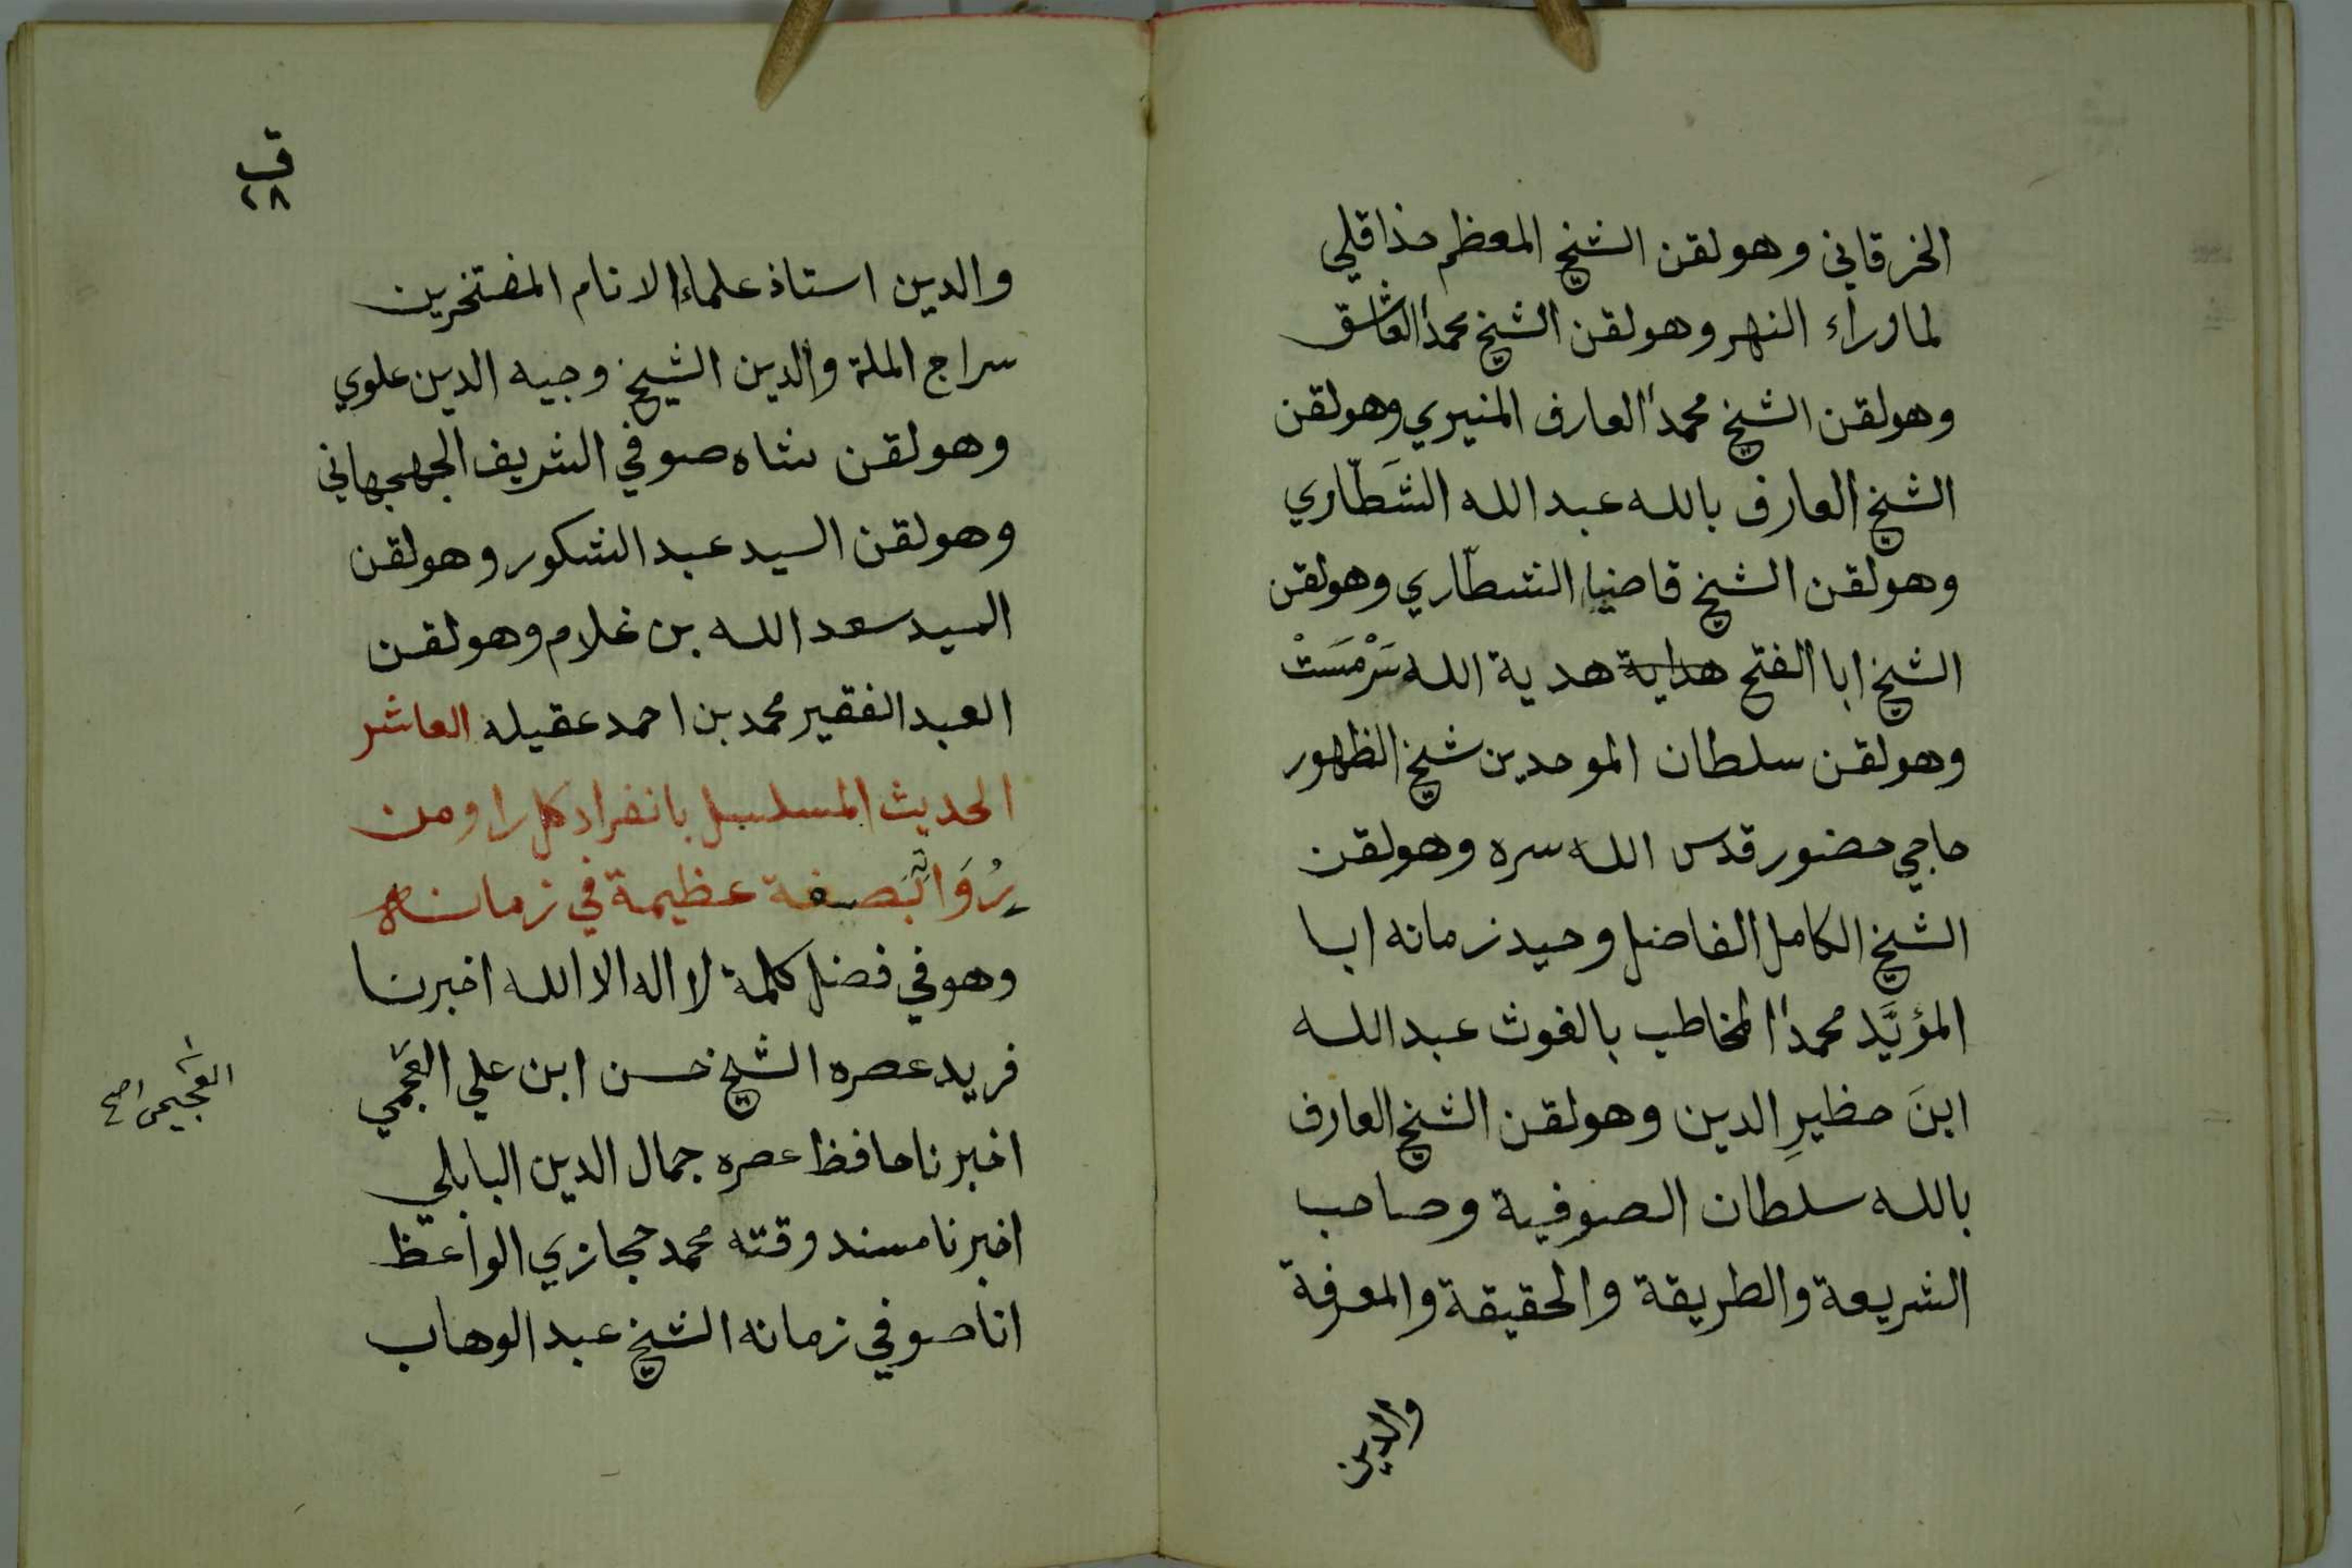 الخرقاني وهو لقن الشيخ المعظم خذاقلي
لما وراء النهر وهو لقن الشيخ محمدا العاشق
وهو لقن الشيخ محمدا العارف المنيري وهو لقن
الشيخ العارف بالله عبد الله الشَطّاري
وهو لقن الشيخ قاضيا الشطّاري وهو لقن
الشيخ ابا الفتح هداية هدية الله سَرْمَسَتْ
وهو لقن سلطان الموحدين شيخ الظهور
حاجي حضور قدس الله سره وهو لقن
الشيخ الكامل الفاضل وحيد زمانه ابا
المؤيَّد محمدا المخاطب بالغوث عبد الله
ابنَ حظيرِ الدين وهو لقن الشيخ العارف
بالله سلطان الصوفية وصاحب
الشريعة والطريقة والحقيقة والمعرفة
والدين
ق
٢٨
والدين استاذ علماء الانام المفتخرين
سراج الملة والدين الشيخ وجيه الدين علوي
وهو لقن شاه صوفي الشريف الجهجهاني
وهو لقن السيد عبد الشكور وهو لقن
السيد سعد الله بن غلام وهو لقن
العبد الفقير محمد بن احمد عقيله العاشر
الحديث المسلسل بانفراد كل راو من
رُوَاتِه بصفة عظيمة في زمانه
وهو في فضل كلمة لا اله الا الله اخبرنا
فريد عصره الشيخ حسن ابن علي العجمي
العجيمي اصح
اخبرنا حافظ عصره جمال الدين البابلي
اخبرنا مسند وقته محمد حجازي الواعظ
انا صوفي زمانه الشيخ عبد الوهاب